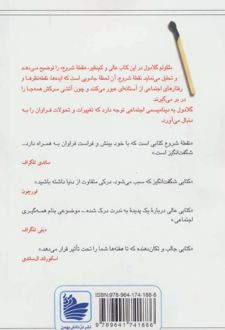 «ملکولم گلادول در این کتاب عالی و کم‌نظیر، «نقطهٔ شروع» را توضیح می‌دهد
و تحلیل می‌نماید. نقطهٔ شروع، آن لحظهٔ جادویی است که ایده‌ها، نقطه‌نظرها و
رفتارهای اجتماعی از آستانه‌ای عبور می‌کند و چون آتشی سرکش همه‌جا را
در بر می‌گیرند.
گلادول به دینامیسمی اجتماعی توجه دارد که تغییرات و تحولات فراوان را به
دنبال می‌آورد.
«نقطهٔ شروع کتابی است که با خود بینش و فراست فراوان به همراه دارد...
شگفت‌انگیز است.»
ساندی تلگراف
«کتابی شگفت‌انگیز که سبب می‌شود، درکی متفاوت از دنیا داشته باشید»
فورچون
«کتابی عالی دربارهٔ یک پدیدهٔ به ندرت درک شده... موضوعی بنام همه‌گیری
اجتماعی.»
دیلی تلگراف
«کتابی جالب و تکان‌دهنده که تا هفته‌ها شما را تحت تأثیر قرار می‌دهد»
اسکاتلند آن‌ساندی
ISBN: 978-964-174-188-6
9 789641 741886